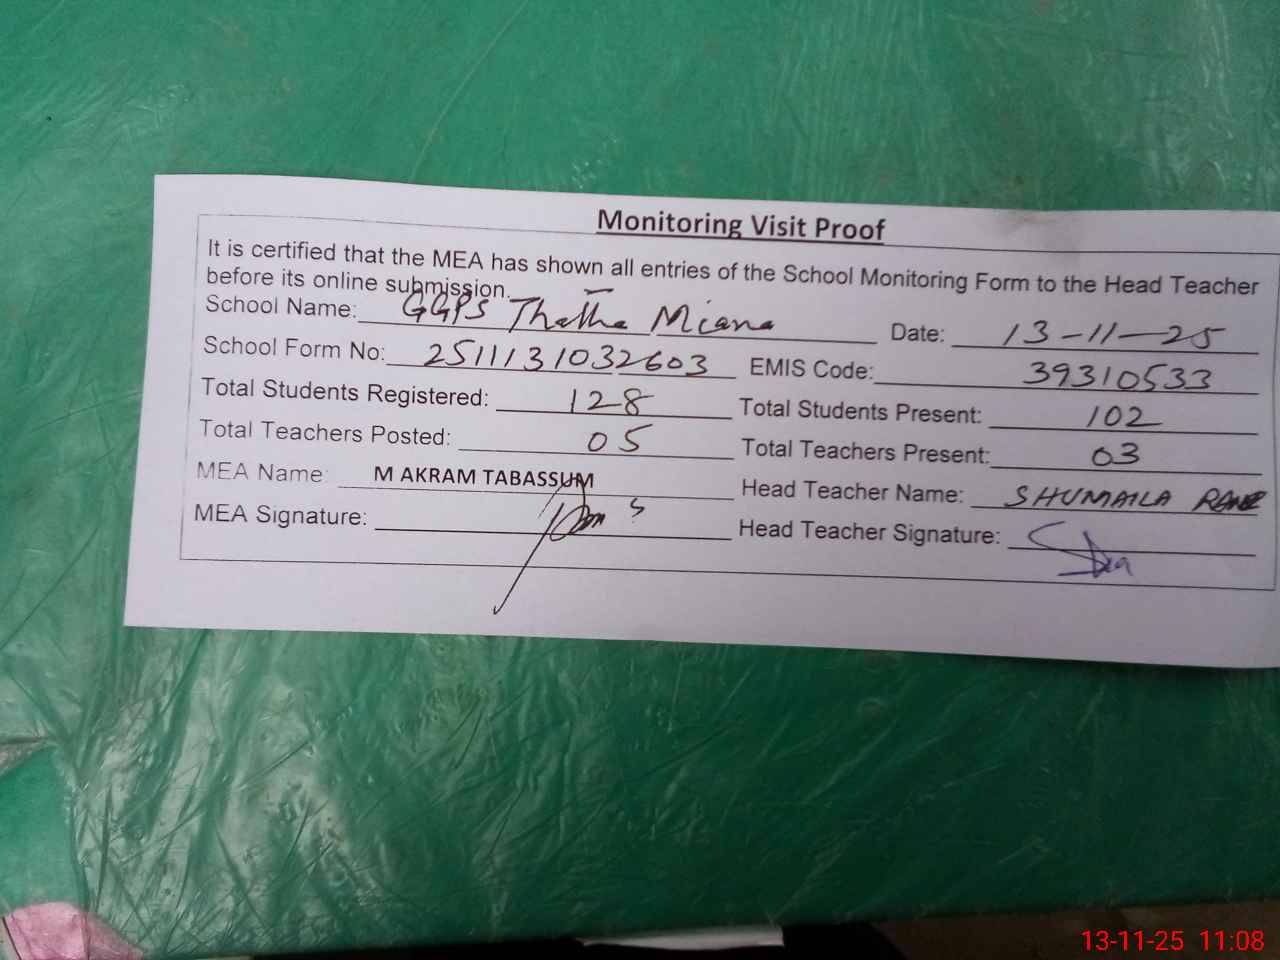 Monitoring Visit Proof
It is certified that the MEA has shown all entries of the School Monitoring Form to the Head Teacher
before its online submission.
School Name: GGPS Thatha Miana Date: 13-11-25
School Form No: 2511131032603 EMIS Code: 39310533
Total Students Registered: 128 Total Students Present: 102
Total Teachers Posted: 05 Total Teachers Present: 03
MEA Name: M AKRAM TABASSUM Head Teacher Name: SHUMAILA
MEA Signature: Head Teacher Signature:
13-11-25 11:08